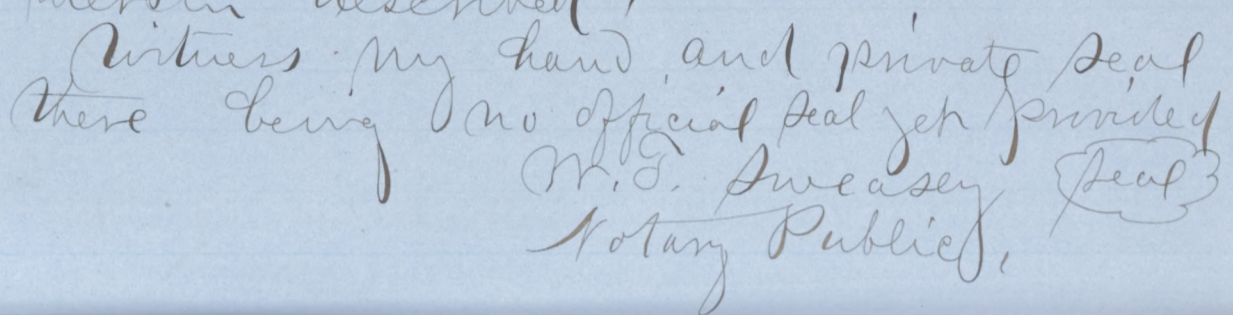 herein described,
Witness my hand and private seal
there being no official seal yet provided
W. T. Sweasey seal
Notary Public,